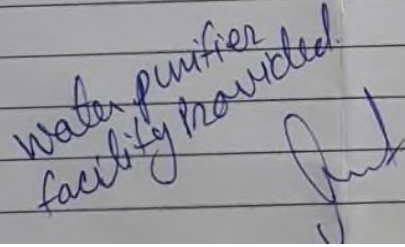 water purifier
facility provided.